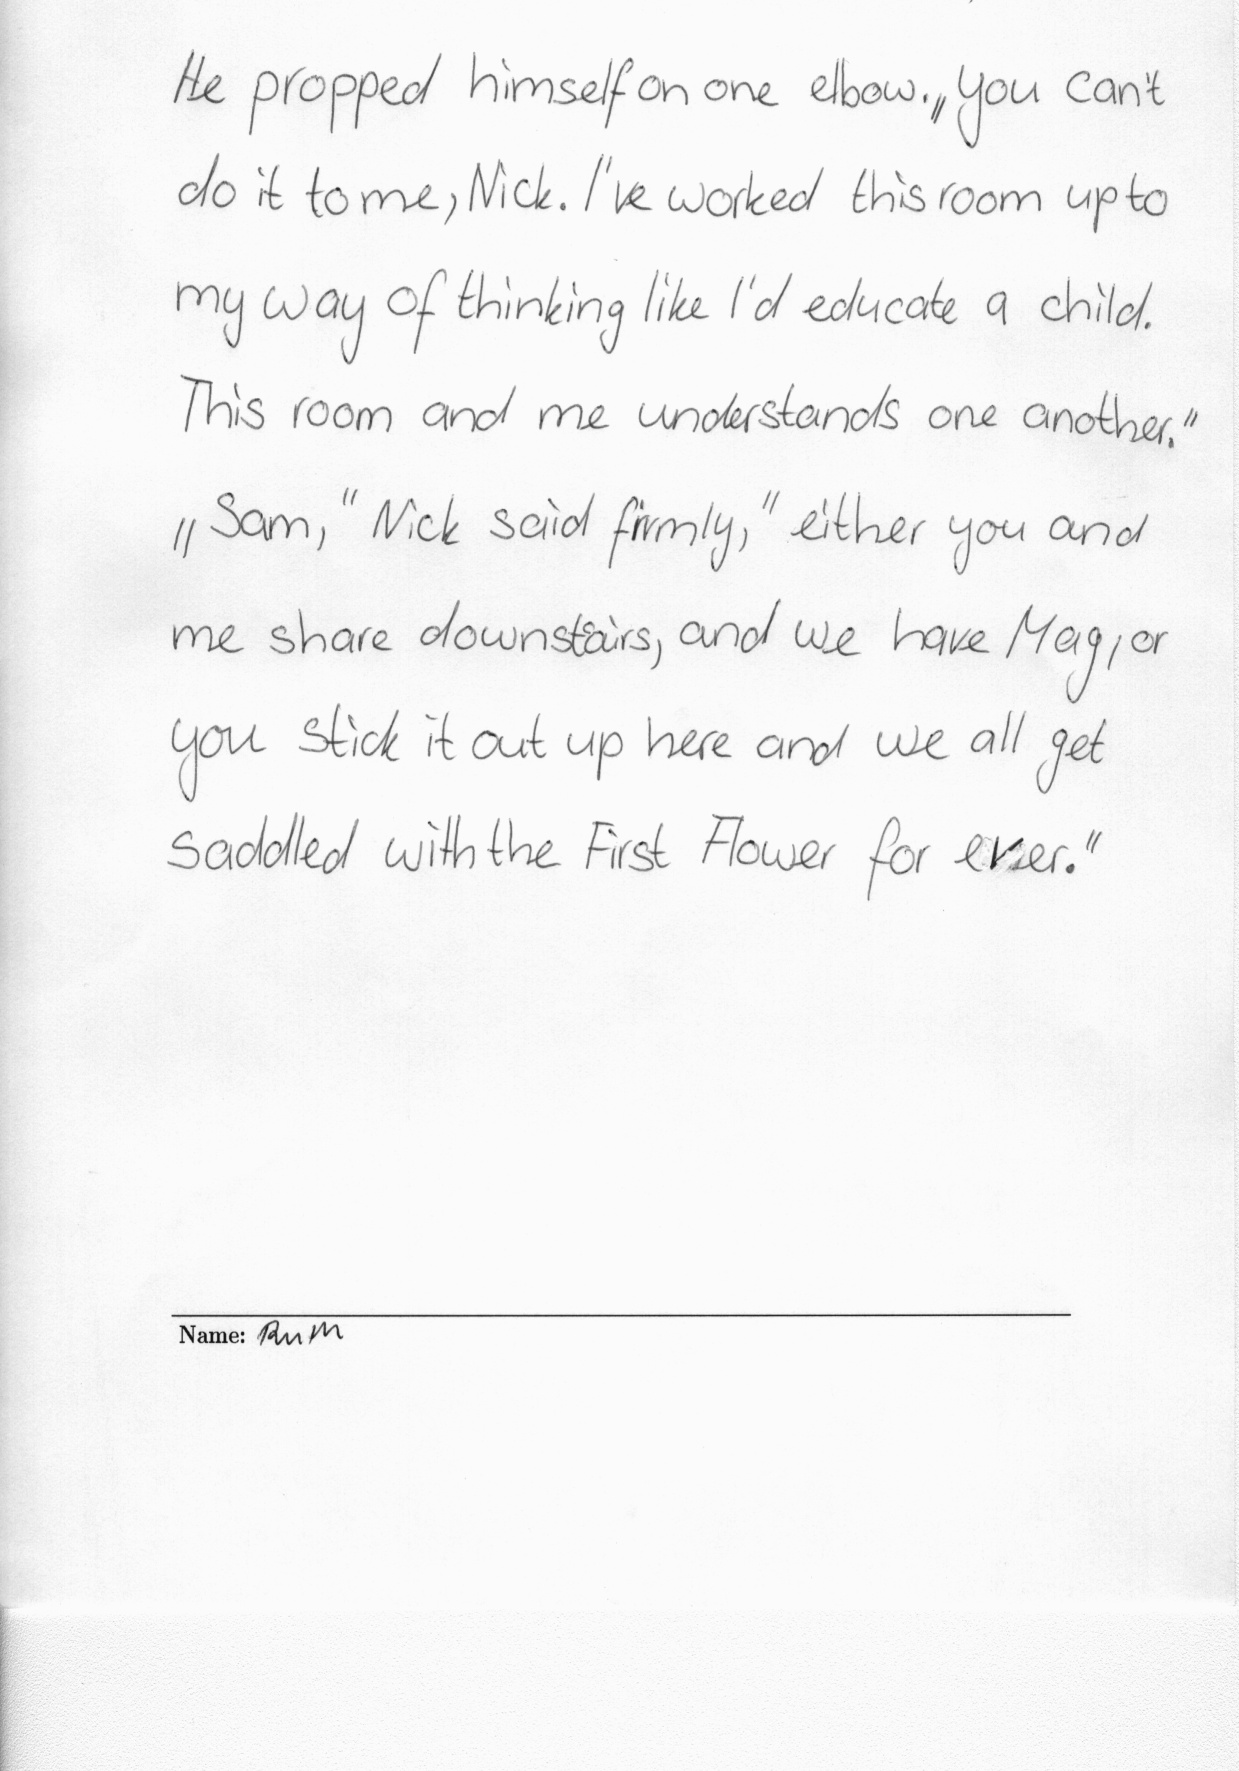 He propped himself on one elbow. „You can't
do it to me, Nick. I've worked this room up to
my way of thinking like I'd educate a child.
This room and me understands one another."
„Sam," Nick said firmly," either you and
me share downstairs, and we have Mag, or
you stick it out up here and we all get
saddled with the First Flower for ever."
Name: Ruth